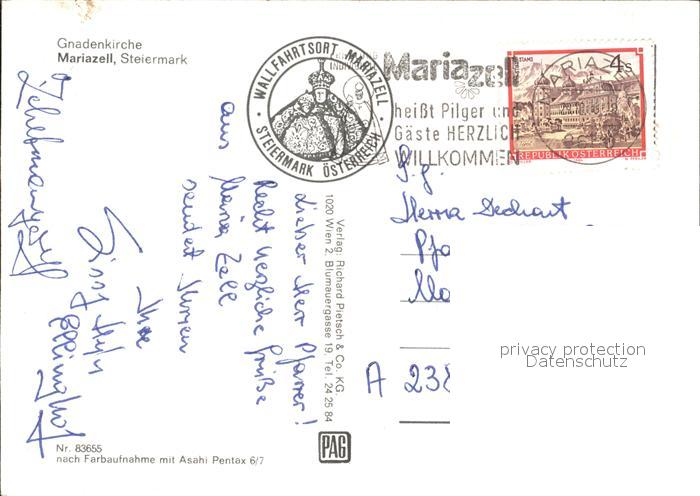 Gnadenkirche
Mariazell, Steiermark
WALLFAHRTSORT MARIAZELL
STEIERMARK ÖSTERREICH
Mariazell
heißt Pilger und
Gäste HERZLICH
WILLKOMMEN
4 S
REPUBLIK ÖSTERREICH
Lieber Herr Pfarrer!
Recht herzliche Grüße
aus Maria Zell
sendet Ihnen
Ihre
Herrn Dechant
Pfa
Ma
A 238
Verlag: Richard Pietsch & Co. KG.
1020 Wien 2, Blumauergasse 19, Tel. 24 25 84
PAG
Nr. 83655
nach Farbaufnahme mit Asahi Pentax 6/7
privacy protection
Datenschutz